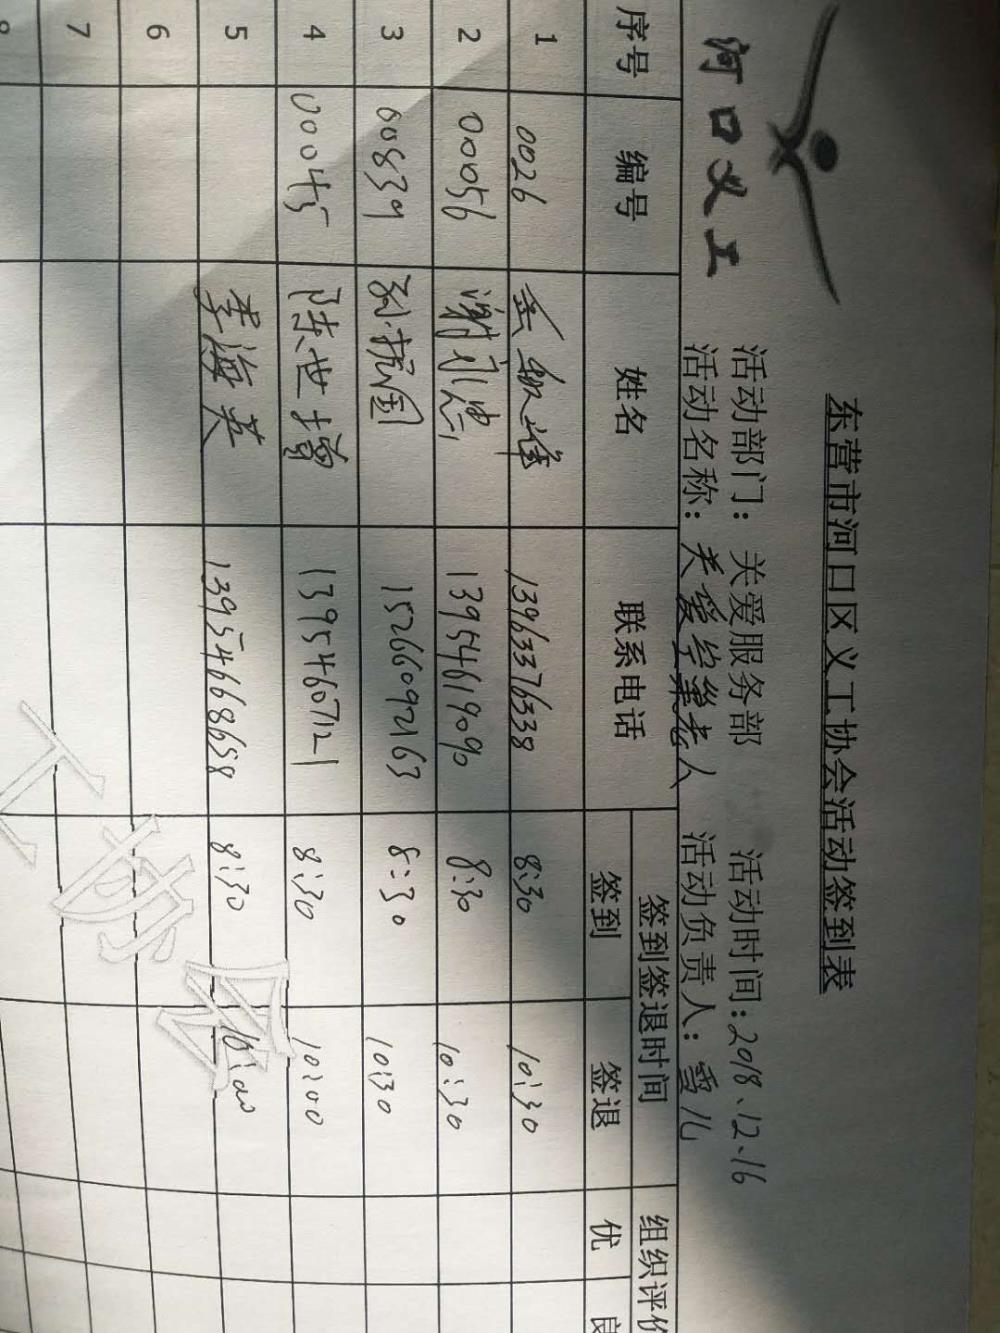 河口义工
东营市河口区义工协会活动签到表
活动部门：关爱服务部 活动时间：2018.12.16
活动名称：关爱华巢老人 活动负责人：雪儿
序号 编号 姓名 联系电话 签到签退时间 组织评价
签到 签退 优 良
1 0026 13963376338 8:30 10:30
2 00056 13954619090 8:30 10:30
3 00839 孙振国 15266092163 8:30 10:30
4 00045 陈世增 13954607121 8:30 10:00
5 李海英 13954668658 8:30 10:00
6
7